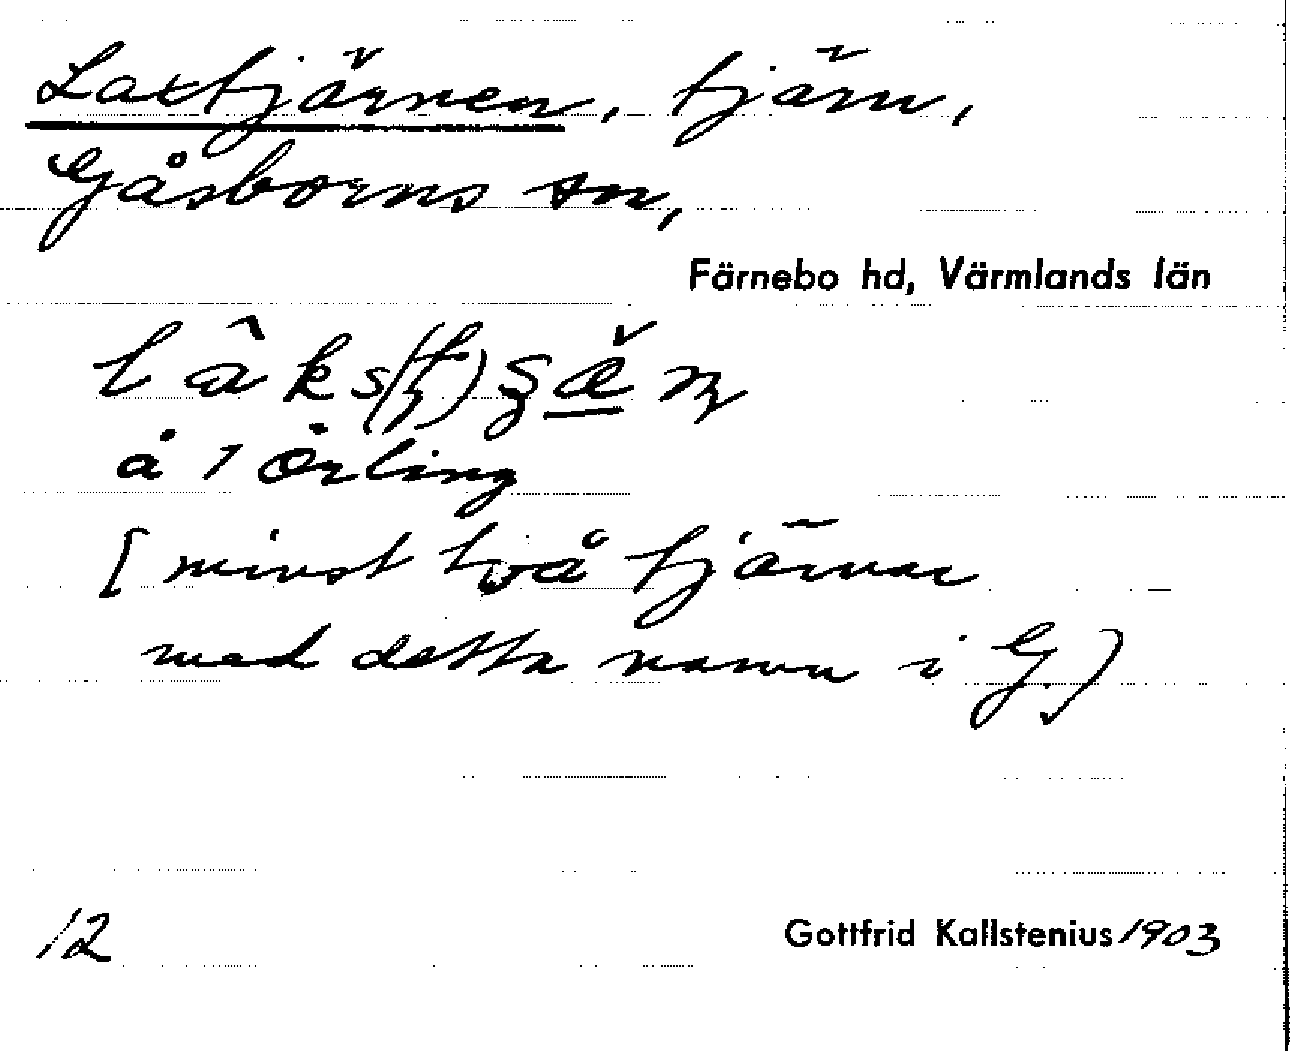 Laxtjärnen, tjärn,
Gåsborns sn,
Färnebo hd, Värmlands län
å 1 Örling
[minst två tjärnar
med detta namn i G.]
12 Gottfrid Kallstenius 1903